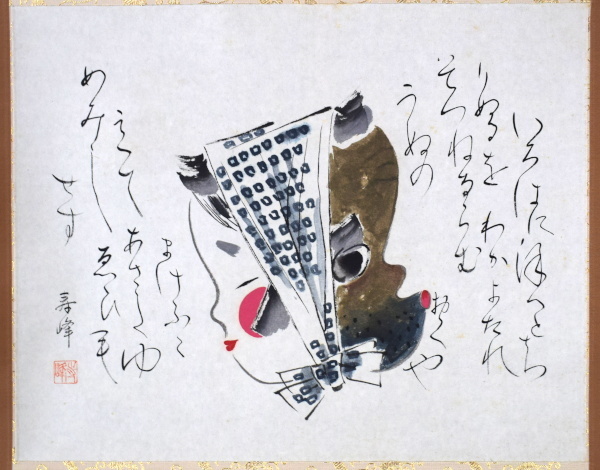 いろはにほへとち
りぬるをわかよたれ
そつねならむ
うゐの
おくや
まけふこ
えてあさきゆ
めみしゑひも
せす
寿峰